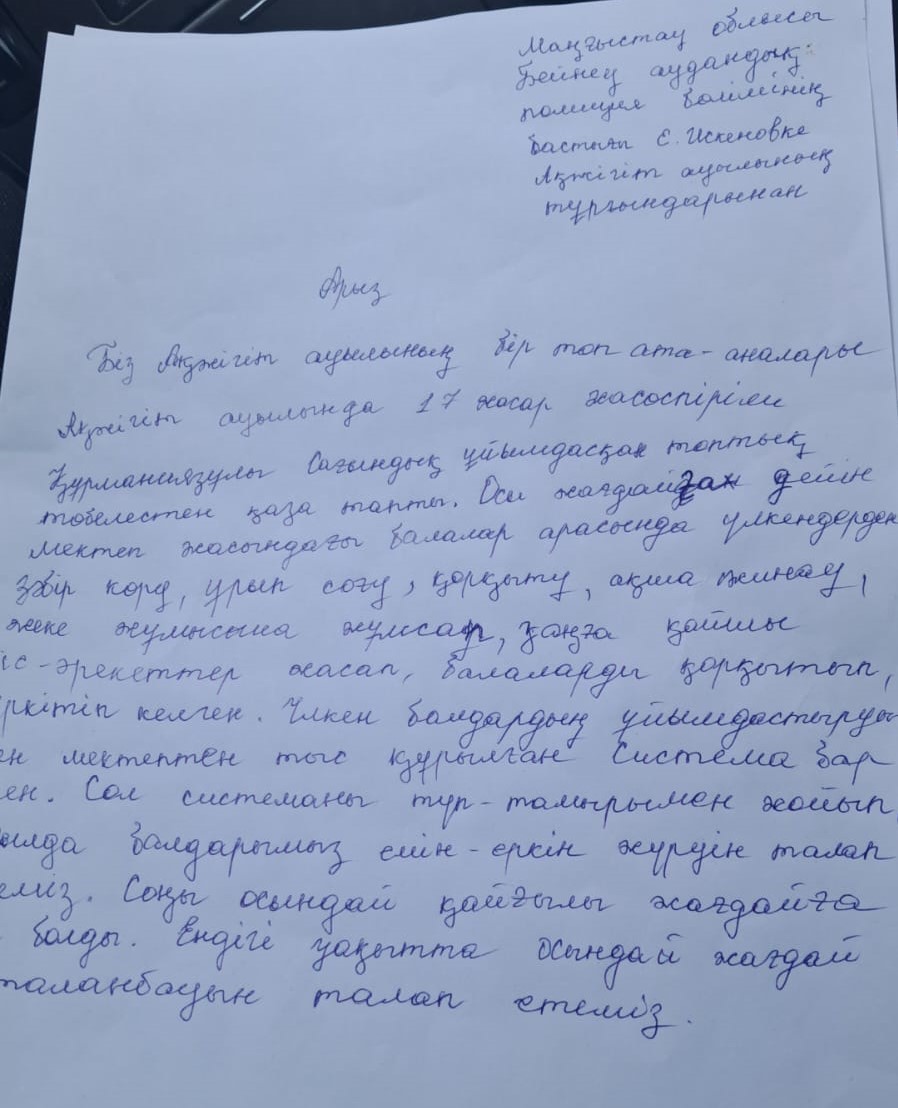 Маңғыстау облысы
Бейнеу аудандық
полиция бөлімінің
бастығы Е. Искеновке
Ақжігіт ауылының
тұрғындарынан
Арыз
Біз Ақжігіт ауылының бір топ ата-аналары
Ақжігіт ауылында 17 жасар жасөспірім
Құрманиязұлы Сағындық ұйымдасқан топтық
төбелестен қаза тапты. Осы жағдайған дейін
мектеп жасындағы балалар арасында үлкендерден
зәбір көру, ұрып соғу, қорқыту, ақша жинау,
жеке жұмысына жұмсап, заңға қайшы
іс-әрекеттер жасап, балаларды қорқытып,
ркітіп келген. Үлкен балдардың ұйымдастыруы
ен мектептен тыс құрылған система бар
ен. Сол системаны түп-тамырымен жойып
ылда балдарымыз еркін-еркін жүруін талап
еміз. Соңы осындай қайғылы жағдайға
болды. Ендігі уақытта осындай жағдай
таланбауын талап етеміз.